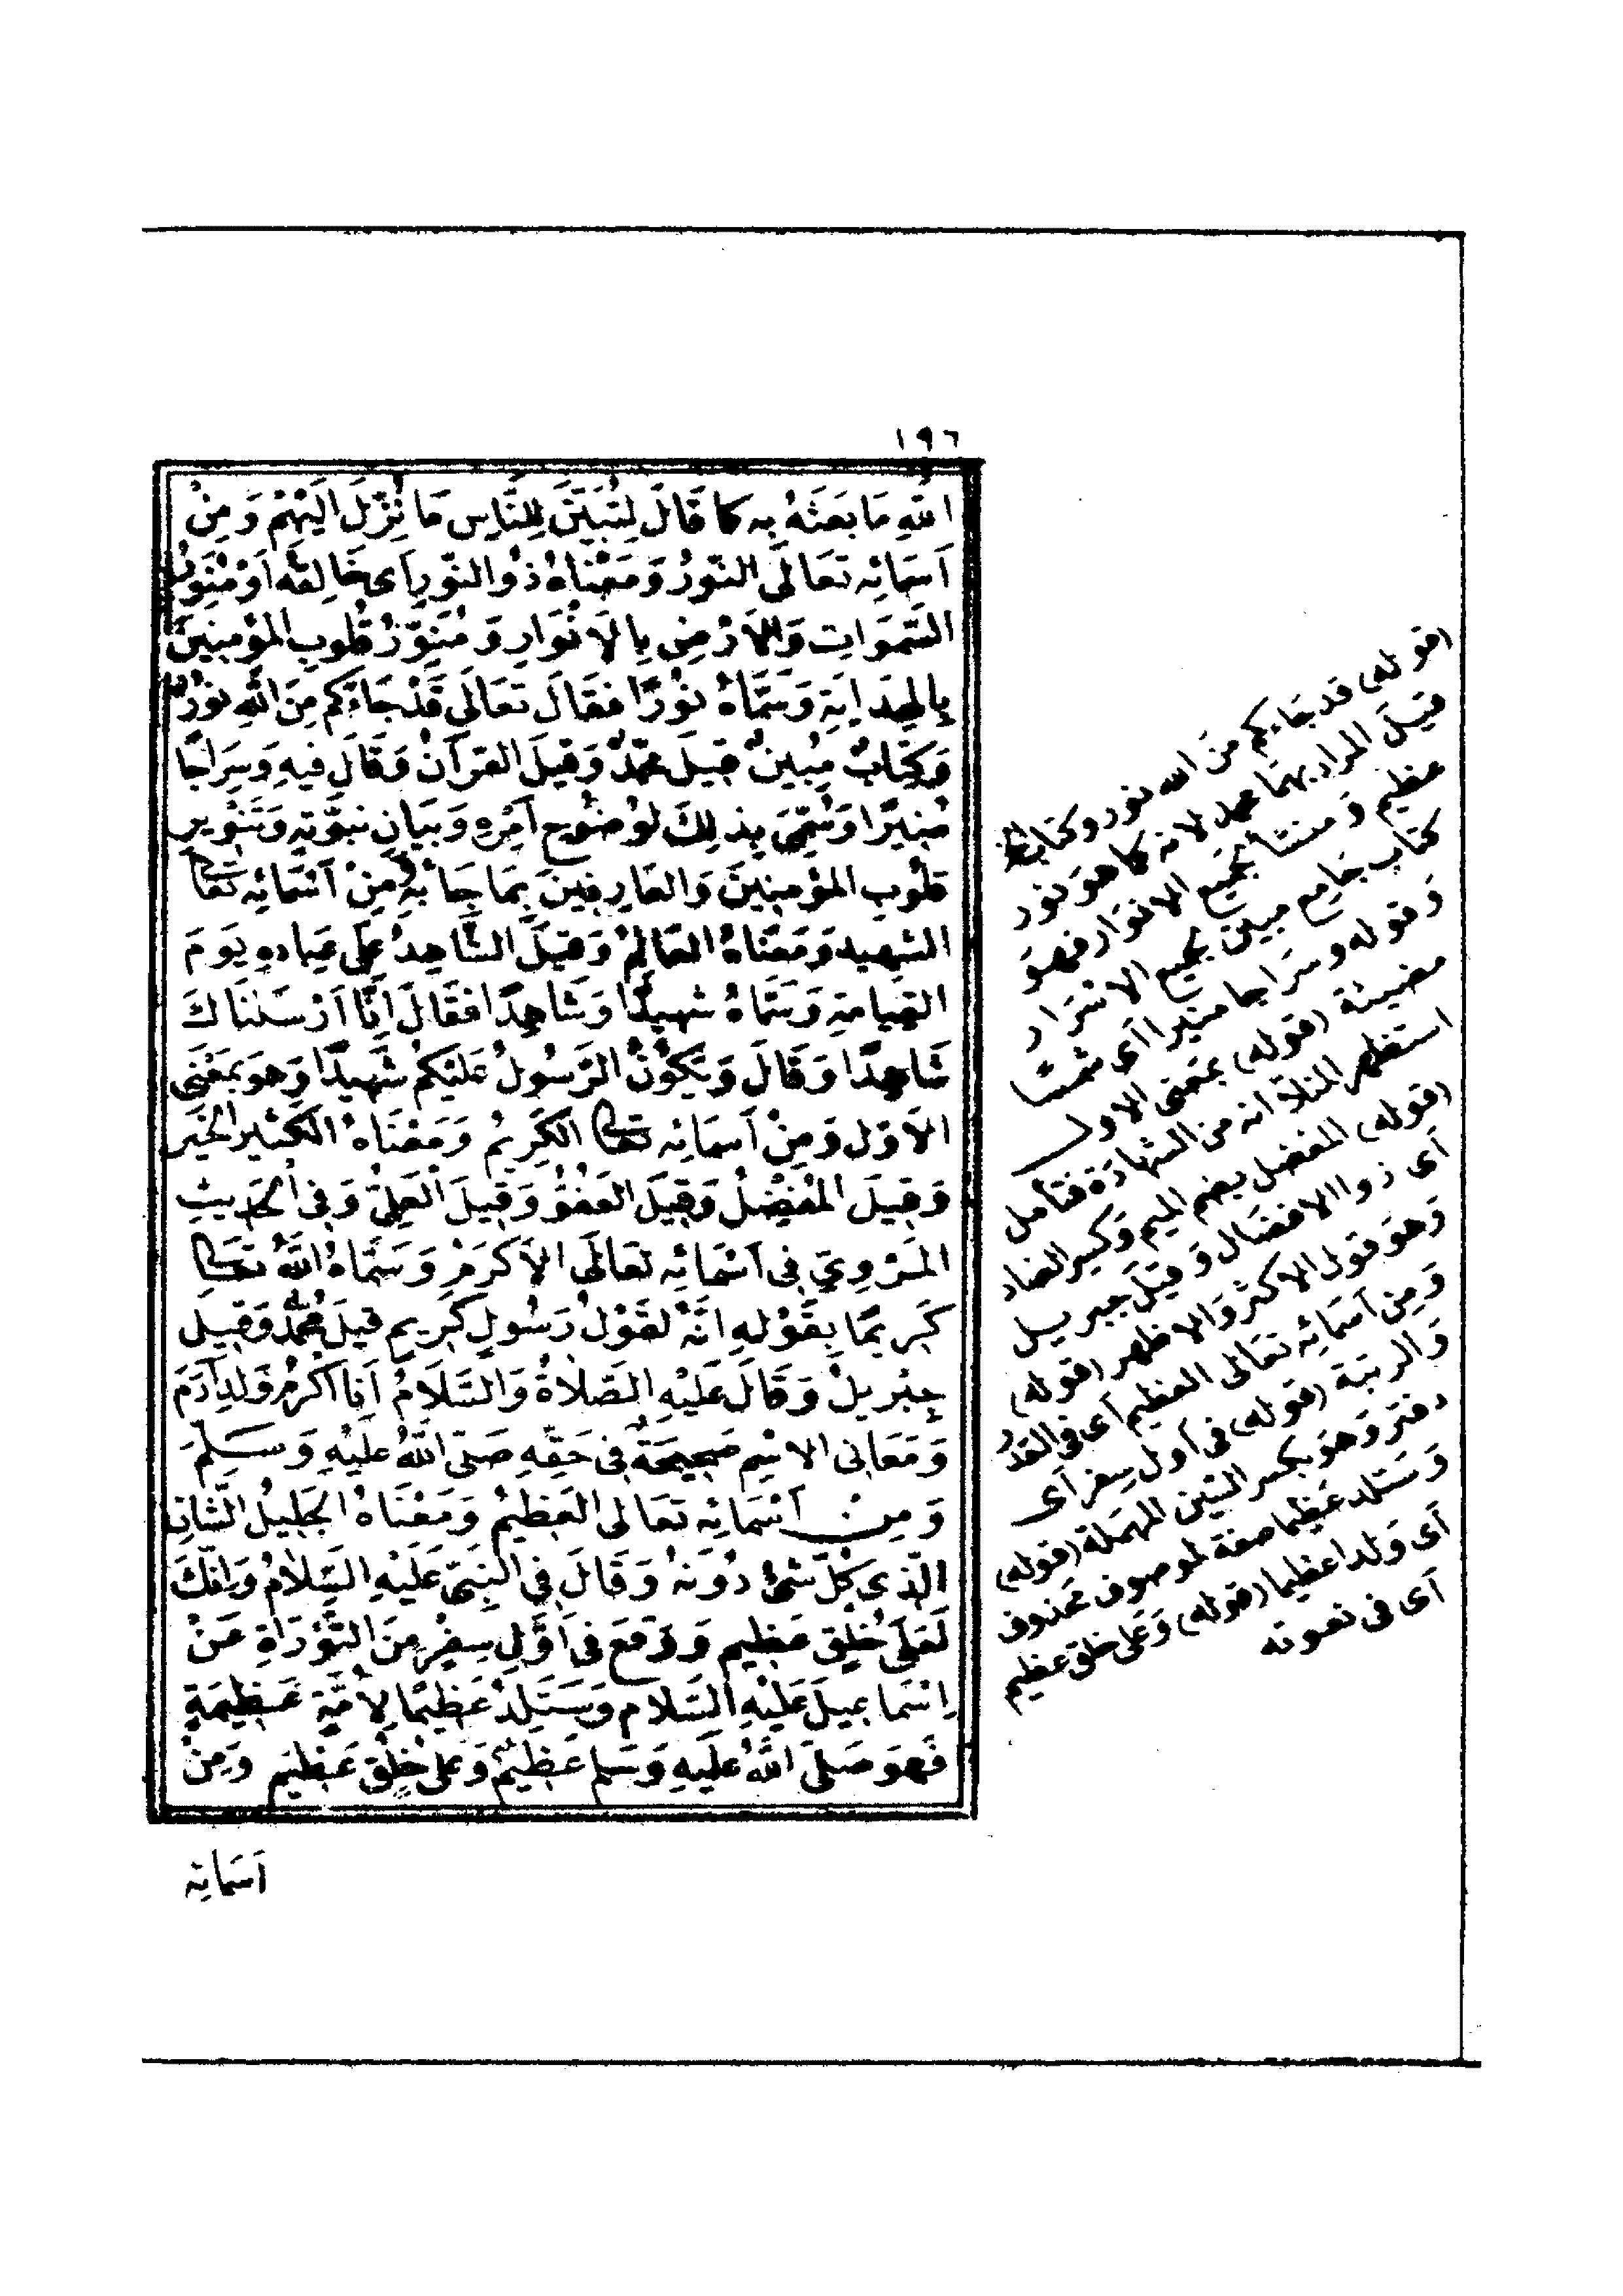 ١٩٦
اللهِ مَا بَعَثَهُ بِهِ كَمَا قَالَ لِتُبَيِّنَ لِلنَّاسِ مَا نُزِّلَ اِلَيْهِمْ وَمِنْ
اَسْمَائِهِ تَعَالَى النُّورُ وَمَعْنَاهُ ذُو النُّورِ اَىْ خَالِقُهُ اَوْ مُنَوِّرُ
السَّمَوَاتِ وَالْاَرْضِ بِالْاَنْوَارِ وَمُنَوِّرُ قُلُوبِ الْمُؤْمِنِينَ
بِالْهِدَايَةِ وَسَمَّاهُ نُورًا فَقَالَ تَعَالَى قَدْ جَاءَكُمْ مِنَ اللهِ نُورٌ
وَكِتَابٌ مُبِينٌ قِيلَ مُحَمَّدٌ وَقِيلَ الْقُرْآنُ وَقَالَ فِيهِ وَسِرَاجًا
مُنِيرًا وَسُمِّىَ بِذٰلِكَ لِوُضُوحِ اَمْرِهِ وَبَيَانِ نُبُوَّتِهِ وَتَنْوِيرِ
قُلُوبِ الْمُؤْمِنِينَ وَالْعَارِفِينَ بِمَا جَاءَ بِهِ وَمِنْ اَسْمَائِهِ تَعَالَى
الشَّهِيدُ وَمَعْنَاهُ الْعَالِمُ وَقِيلَ الشَّاهِدُ عَلَى عِبَادِهِ يَوْمَ
الْقِيَامَةِ وَسَمَّاهُ شَهِيدًا وَشَاهِدًا فَقَالَ اِنَّا اَرْسَلْنَاكَ
شَاهِدًا وَقَالَ وَيَكُونُ الرَّسُولُ عَلَيْكُمْ شَهِيدًا وَهُوَ بِمَعْنَى
الْاَوَّلِ وَمِنْ اَسْمَائِهِ تَعَالَى الْكَرِيمُ وَمَعْنَاهُ الْكَثِيرُ الْخَيْرِ
وَقِيلَ الْمُفْضِلُ وَقِيلَ الْعَفُوُّ وَقِيلَ الْعَلِىُّ وَفِى الْحَدِيثِ
الْمَرْوِيِّ فِى اَسْمَائِهِ تَعَالَى الْاَكْرَمُ وَسَمَّاهُ اللهُ تَعَالَى
كَرِيمًا بِقَوْلِهِ اِنَّهُ لَقَوْلُ رَسُولٍ كَرِيمٍ قِيلَ مُحَمَّدٌ وَقِيلَ
جِبْرِيلُ وَقَالَ عَلَيْهِ الصَّلَاةُ وَالسَّلَامُ اَنَا اَكْرَمُ وَلَدِ آدَمَ
وَمَعَانِى الْاِسْمِ صَحِيحَةٌ فِى حَقِّهِ صَلَّى اللهُ عَلَيْهِ وَسَلَّمَ
وَمِنْ اَسْمَائِهِ تَعَالَى الْعَظِيمُ وَمَعْنَاهُ الْجَلِيلُ الشَّانِ
الَّذِى كُلُّ شَىْءٍ دُونَهُ وَقَالَ فِى النَّبِىِّ عَلَيْهِ السَّلَامُ وَاِنَّكَ
لَعَلَى خُلُقٍ عَظِيمٍ وَوَقَعَ فِى اَوَّلِ سِفْرٍ مِنَ التَّوْرَاةِ عَنْ
اِسْمَاعِيلَ عَلَيْهِ السَّلَامُ وَسَتَلِدُ عَظِيمًا لِاُمَّةٍ عَظِيمَةٍ
فَهُوَ صَلَّى اللهُ عَلَيْهِ وَسَلَّمَ عَظِيمٌ وَعَلَى خُلُقٍ عَظِيمٍ وَمِنْ
اَسْمَائِهِ
(قوله) قد جاءكم من الله نور وكتاب
قيل المراد بهما محمد لانه كما هو نور
عظيم ومنشأ لجميع الانوار فهو
كتاب جامع مبين لجميع الاسرار
وقوله وسراجا منيرا اى شمسا
مضيئة (قوله) بمعنى الاول
استظهر المنلا انه من الشهادة فتأمل
(قوله) المفضل بضم الميم وكسر الضاد
اى ذو الافضال وقيل جبريل
وهو قول الاكثر والاظهر (قوله)
ومن اسمائه تعالى العظيم اى فى القدر
والرتبة (قوله) فى اول سفر اى
دفتر وهو بكسر السين المهملة (قوله)
وستلد عظيما صفة لموصوف محذوف
اى ولدا عظيما (قوله) وعلى خلق عظيم
اى فى نعوته